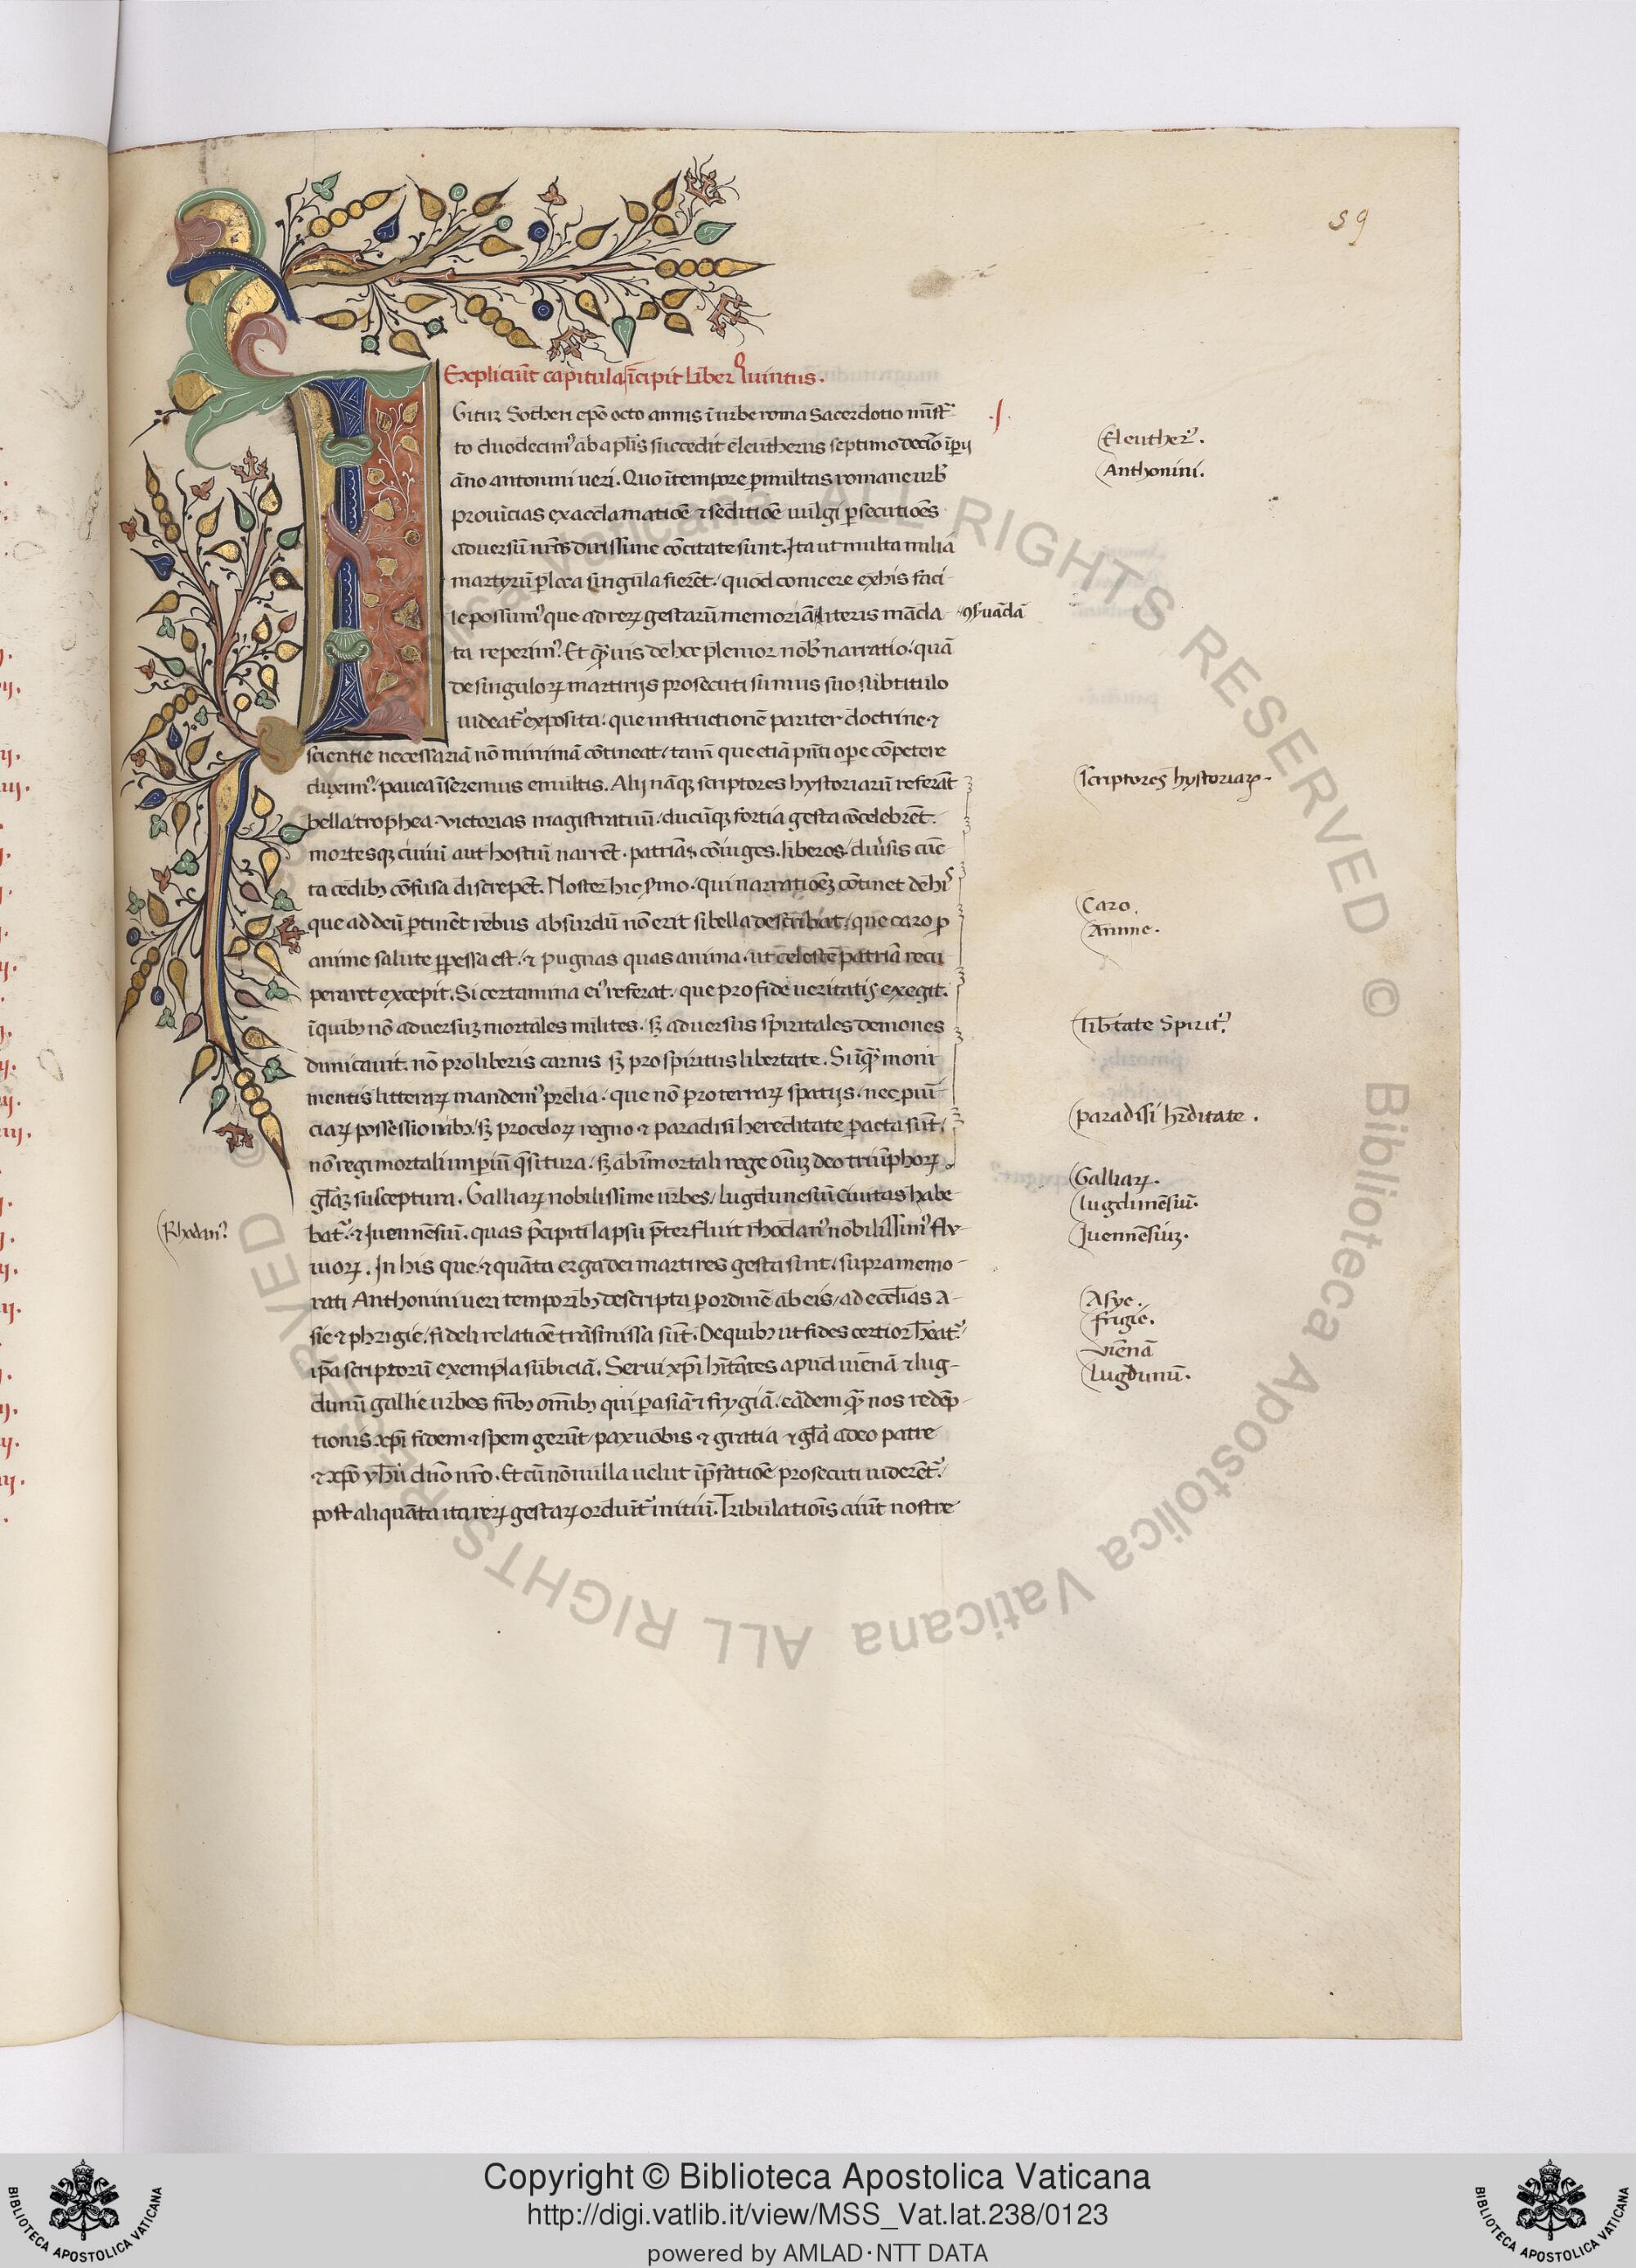 59
Expliciūt capitula īcipit liber Quintus.
Gitur Sotheri epō octo annis ī urbe roma Sacerdotio mīst̄
to duodecimꝰ ab aplīs succedit eleutherus septimo decīo īperij
āno antonini ueri. Quo ī tempore ꝑ multas romane urb̄
prouīcias ex acclamatiōe ⁊ seditiōe uulgi ꝑsecutiōēs
aduersū nr̄os dirissime cōcitate sunt. Ita ut multa milia
martyrū ꝑ loca singula fierēt. quod conicere ex his faci-
le possumꝰ que ad reꝝ gestarū memoriā literis māda-
ta reperimꝰ. Et quāuis de hoc plenior nob̄ narratio. quā
de singuloꝝ martirijs prosecuti sumus suo subtitulo
uideatꝰ exposita. que instructionē pariter doctrine ⁊
scientie necessariā nō minimā cōtineat. tam̄ que etiā pn̄ti oꝑe cōpetere
duximꝰ. pauca īseremus e multis. Alij nāqꝫ scriptores hystoriarū referāt
bella. trophea. victorias magistratuū. ducūqꝫ fortia gesta cōcelebrēt.
mortesqꝫ ciuiū aut hostiū narrēt. patriā. cōiuges. liberos. diuīsis cūc
ta cedibꝫ cōfusa discrepēt. Noster hic sꝰmo. qui narratiōeꝫ cōtinet de hiˢ
que ad deū ꝑtinēt rebus absurdū nō erit si bella describat. que caro ꝓ
anime salute ꝑpessa est. ⁊ pugnas quas anima. ut celestē patriā recu
peraret excepit. Si certamina eiꝰ referat. que pro fide ueritatis exegit.
ī quibꝫ nō aduersuꝫ mortales milites. sꝫ aduersus spiritales demones
dimicauit. nō pro liberis carnis sꝫ pro spiritus libertate. Si īqua moni
mentis litteraꝝ mandemꝰ prelia. que nō pro terraꝝ spatijs. nec ꝓuī
ciaꝝ possessionibꝫ. sꝫ pro celoꝝ regno ⁊ paradisi hereditate ꝑacta sūt.
nō regi mortali imꝑiū quesitura. sꝫ ab īmortali rege oīuꝫ deo triūphoꝝ
glāꝫ susceptura. Galliaꝝ nobilissime urbes. lugdunēsiū ciuitas habe
batꝰ. ⁊ Juennēsiū. quas p̄cipiti lapsu p̄terfluit rhodanꝰ nobilissimꝰ flu
uioꝝ. In his que ⁊ quāta erga dei martires gesta sint. supra memo-
rati Anthonini ueri temporibꝫ descripta ꝑ ordinē ab eis. ad ecclīas A-
sie ⁊ phrigie. fideli relatiōe trāsmissa sūt. De quibꝫ ut fides certior hēatꝰ.
ipā scriptorū exempla subiciā. Serui xp̄i hītātes apud uiēnā ⁊ lug-
dunū gallie urbes frībꝫ omībꝫ qui ꝑ asiā ⁊ frygiā. eādem quā nos redēp-
tionis xp̄i fidem ⁊ spem gerūt. pax uobis ⁊ gratia ⁊ glā a deo patre
⁊ xp̄o yhū dn̄o nr̄o. Et cū nōnulla uelut īp̄fatiōe prosecuti uiderētꝰ.
post aliquāta ita reꝝ gestaꝝ orduītꝰ initiū. Tribulatiōis aiūt nostre
Eleutherꝰ.
Anthonini.
ꝯsuādā
scriptores hystoriaꝝ.
Caro.
Anime.
libtate Spiritꝰ.
paradisi hr̄ditate.
Galliaꝝ.
lugdunēsiū.
Juennēsiuꝫ.
Rhodanꝰ
Asye.
frigie.
viēnā
Lugdunū.
© Biblioteca Apostolica Vaticana ALL RIGHTS RESERVED © Biblioteca Apostolica Vaticana ALL RIGHTS RESERVED
Copyright © Biblioteca Apostolica Vaticana
http://digi.vatlib.it/view/MSS_Vat.lat.238/0123
powered by AMLAD·NTT DATA
BIBLIOTECA APOSTOLICA VATICANA
BIBLIOTECA APOSTOLICA VATICANA